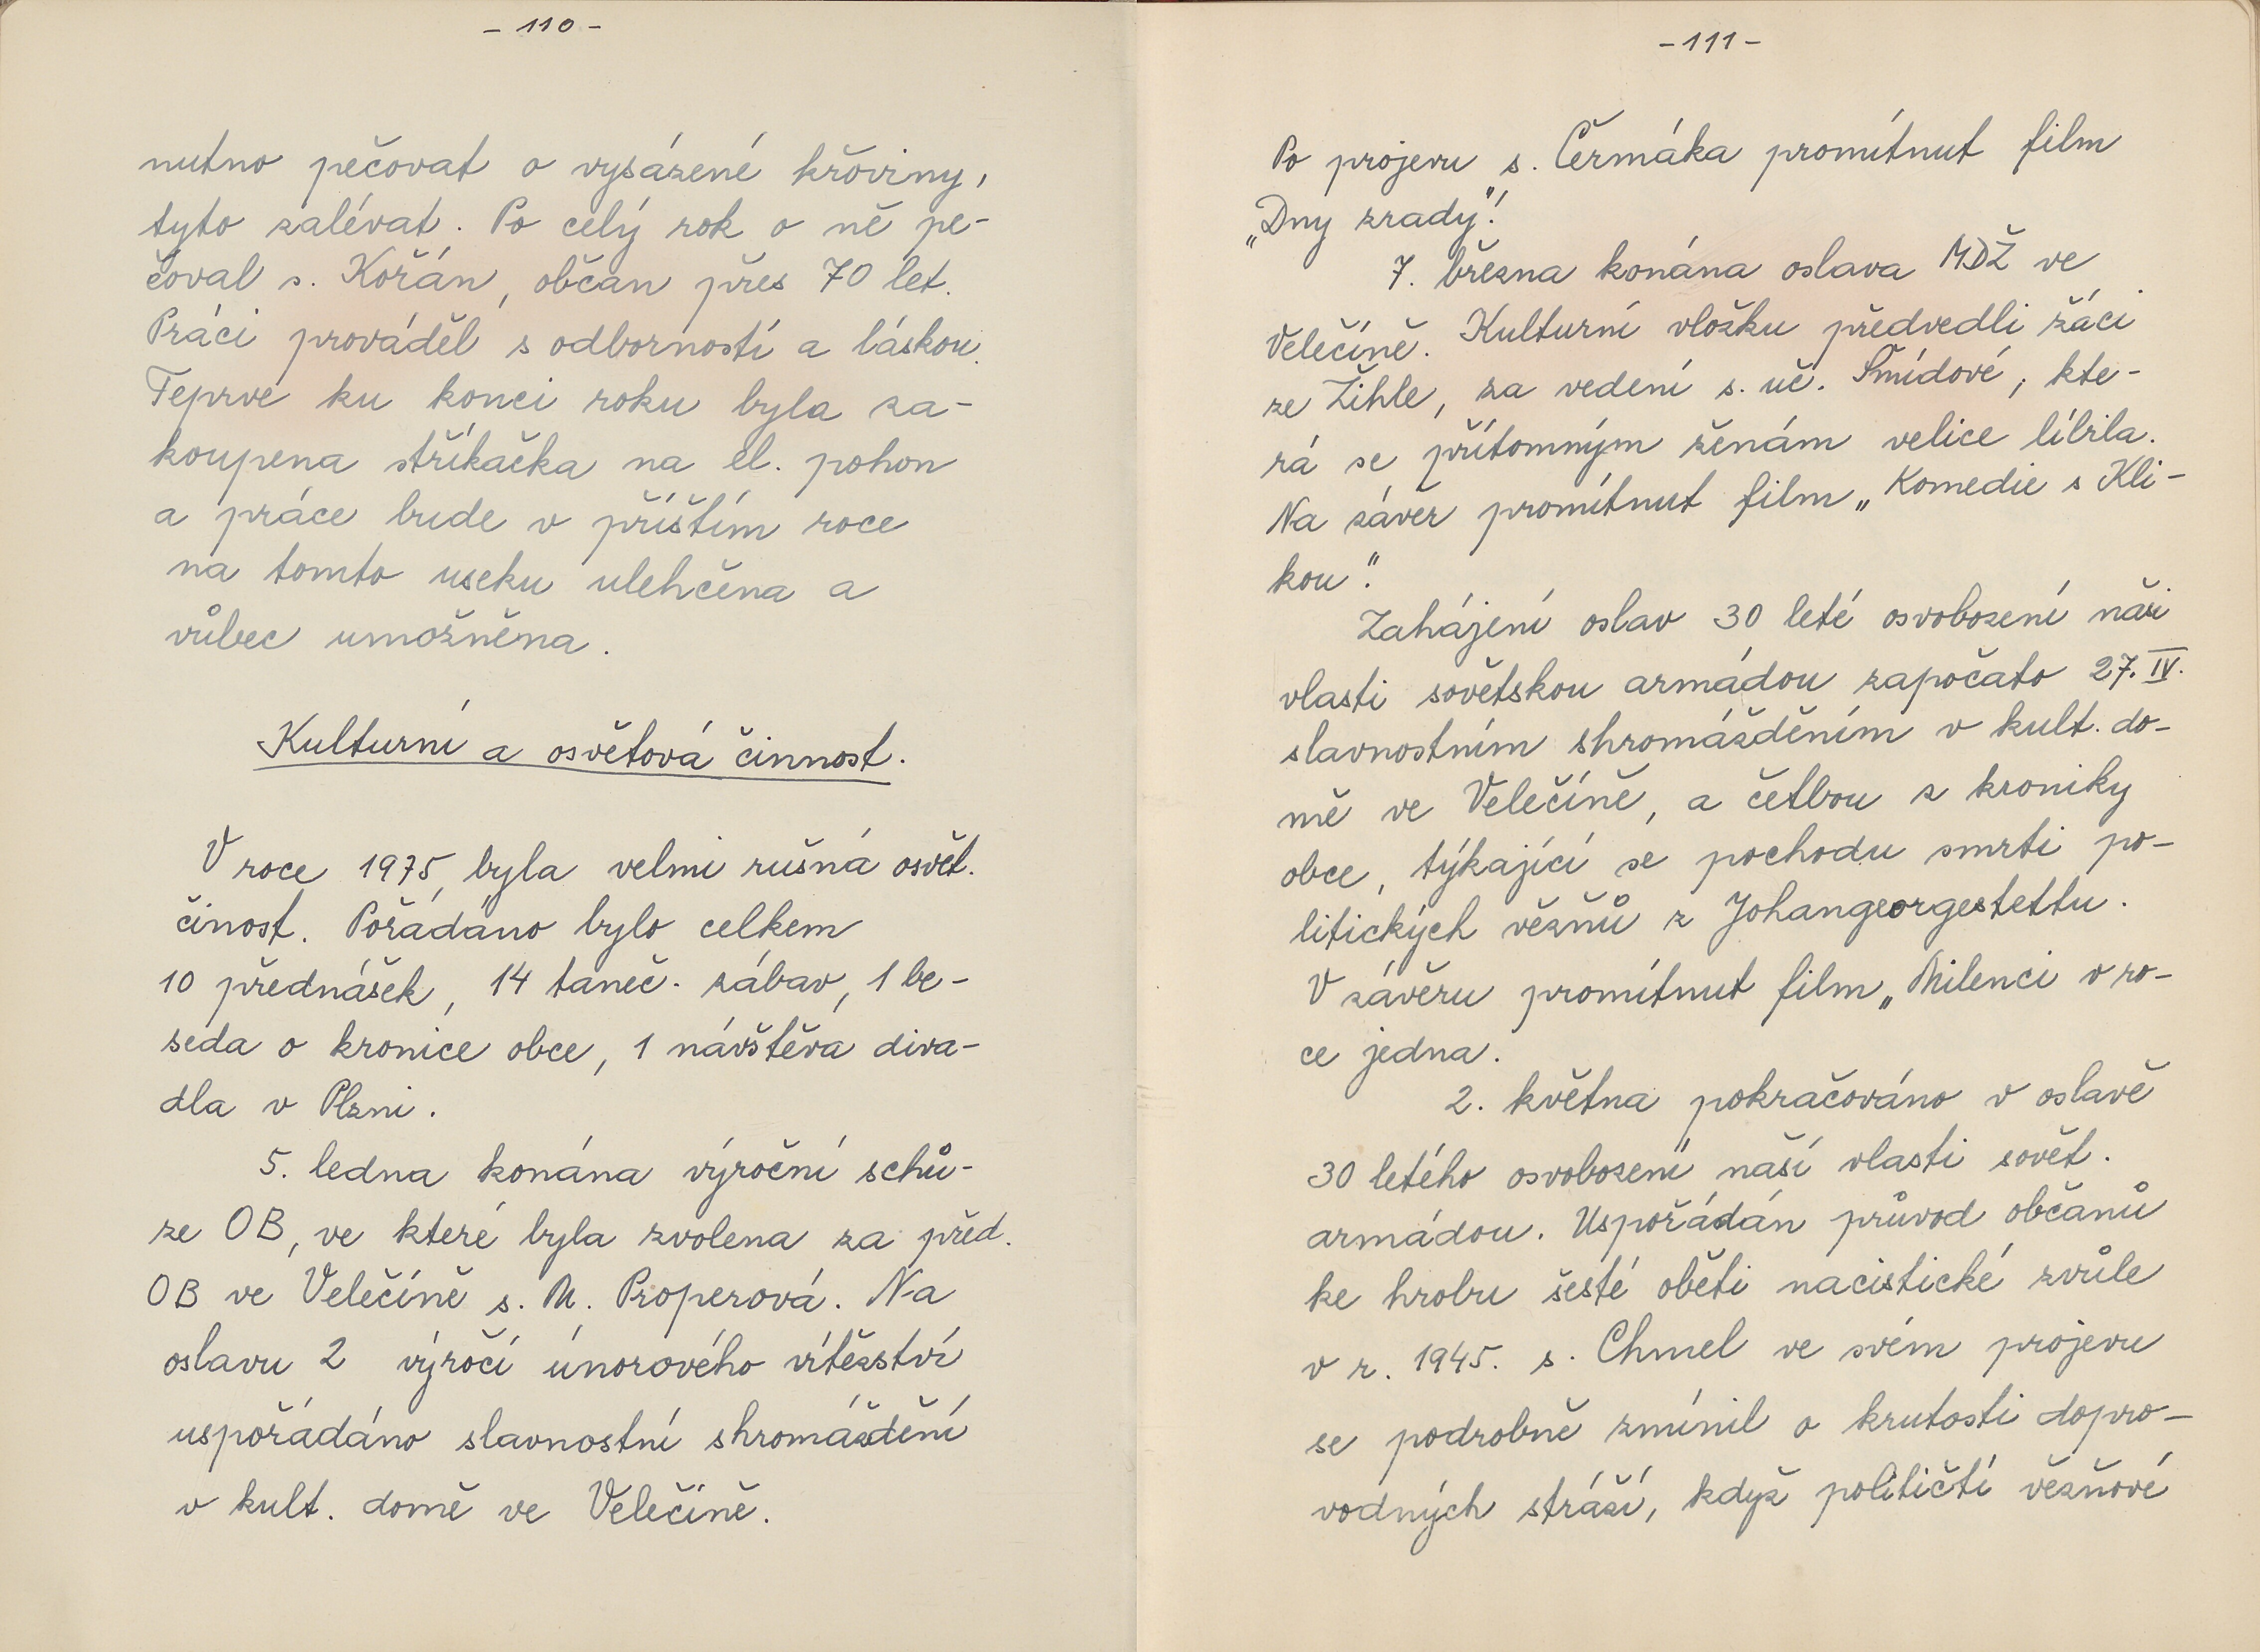 - 110 -
nutno pečovat o vysázené křoviny,
tyto zalévat. Po celý rok o ně pe-
čoval s. Kořán, občan přes 70 let.
Práci prováděl s odborností a láskou.
Teprve ku konci roku byla za-
koupena stříkačka na el. pohon
a práce bude v příštím roce
na tomto useku ulehčena a
vůbec umožněna.
Kulturní a osvětová činnost.
V roce 1975, byla velmi rušná osvět.
činost. Pořádáno bylo celkem
10 přednášek, 14 taneč. zábav, 1 be-
seda o kronice obce, 1 návštěva diva-
dla v Plzni.
5. ledna konána výroční schů-
ze OB, ve které byla zvolena za před.
OB ve Velečíně s. M. Properová. Na
oslavu 2 výročí únorového vítězství
uspořádáno slavnostní shromáždění
v kult. domě ve Velečíně.
- 111 -
Po projevu s. Čermáka promítnut film
„Dny zrady“!
7. března konána oslava MDŽ ve
Velečíně. Kulturní vložku předvedli žáci
ze Žihle, za vedení s. uč. Šmídové, kte-
rá se přítomným ženám velice líbila.
Na závěr promítnut film „Komedie s Kli-
kou“.
Zahájení oslav 30 leté osvobození naší
vlasti sovětskou armádou započato 27. IV.
slavnostním shromážděním v kult. do-
mě ve Velečíně, a četbou z kroniky
obce, týkající se pochodu smrti po-
litických vězňů z Johangeorgestettu.
V závěru promítnut film „Milenci v ro-
ce jedna.
2. května pokračováno v oslavě
30 letého osvobození naší vlasti sovět.
armádou. Uspořádán průvod občanů
ke hrobu šesté oběti nacistické zvůle
v r. 1945. s. Chmel ve svém projevu
se podrobně zmínil o krutosti dopro-
vodných stráží, když političtí vězňové